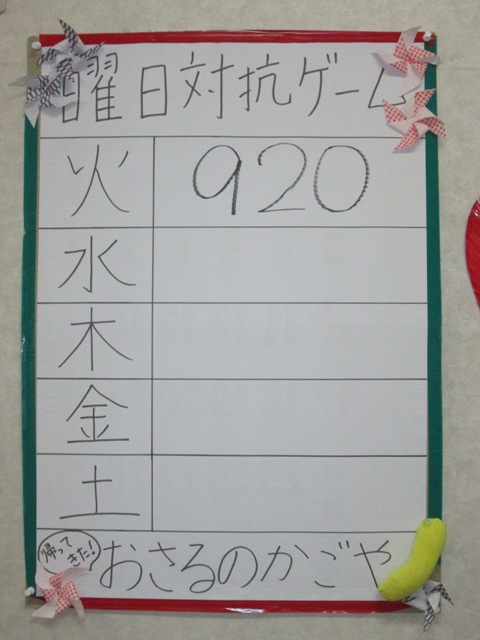 曜日対抗ゲーム
火 920
水
木
金
土
帰って
きた!
おさるのかごや